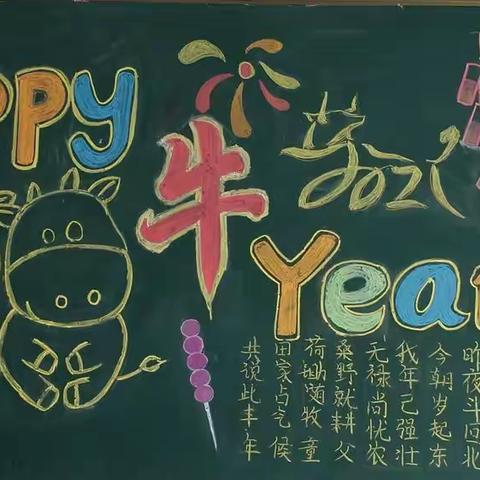 ppy
牛
2021
Yea
昨夜斗回北
今朝岁起东
我年已强壮
无禄尚忧农
桑野就耕父
荷锄随牧童
田家占气候
共说此丰年